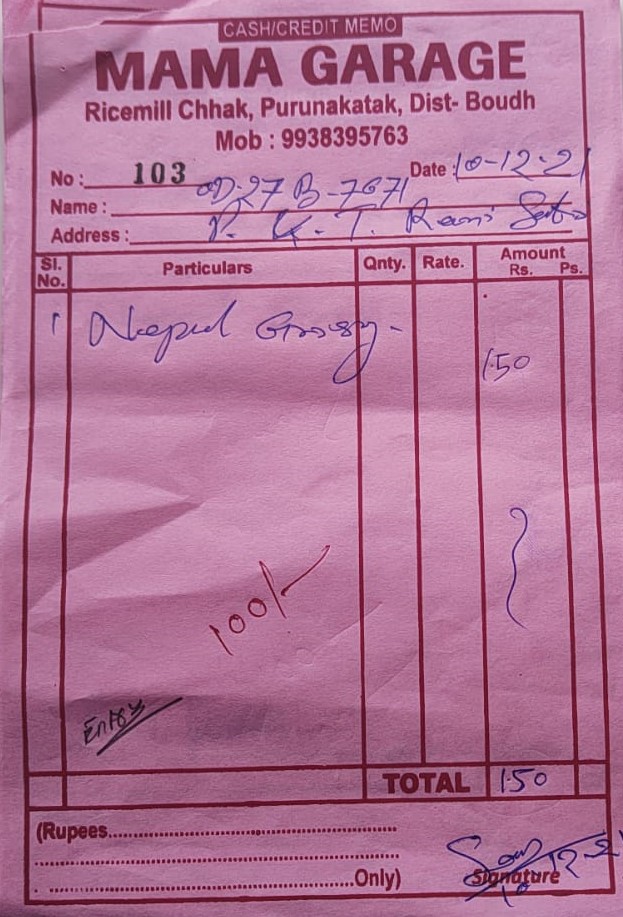 CASH/CREDIT MEMO
MAMA GARAGE
Ricemill Chhak, Purunakatak, Dist- Boudh
Mob : 9938395763
No : 103 Date : 10-12-21
OD-27 B-7671
Name :
Address : P. K. T.
Sl. No. Particulars Qnty. Rate. Amount Rs. Ps.
1
150
100/-
Entry
TOTAL 150
(Rupees
Only) Signature